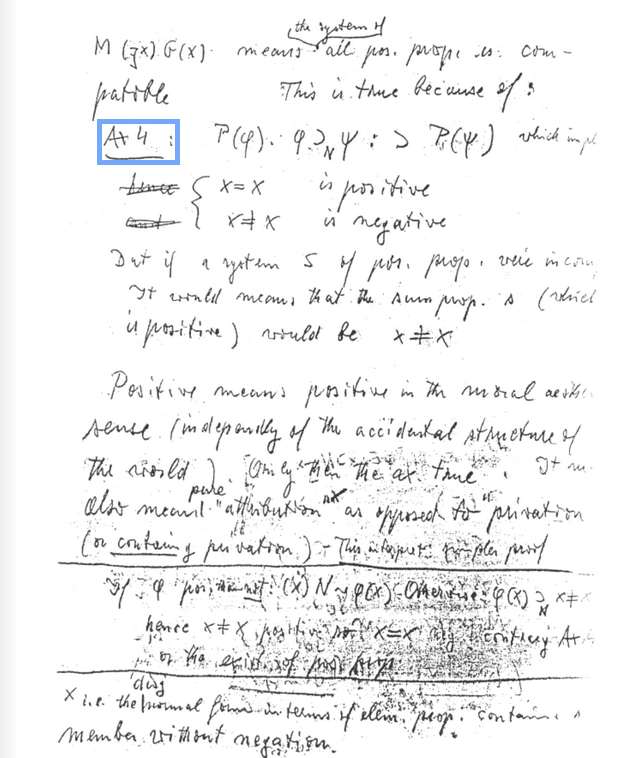 the system of
M (∃x) G(x) means all pos. prop. is com-
patible This is true because of:
Ax 4: P(φ). φ ⊃_N ψ : ⊃ P(ψ) which impl
{ x=x is positive
x≠x is negative
But if a system S of pos. prop. were incom
It would mean, that the sum prop. s (which
is positive) would be x≠x
Positive means positive in the moral aesthe
sense (independly of the accidental structure of
the world). Only then the ax. true. It m
also mean "attribution" as opposed to "privation
pure
(or containing privation) – This interpret. simpler proof
If φ pos. not: (x) N ~φ(x) – Otherwise: φ(x) ⊃_N x≠
hence x≠x positive x=x contrary Ax
or the exist. of pos. prop.
x i.e. the normal form in terms of elem. prop. contains
disj
member without negation.